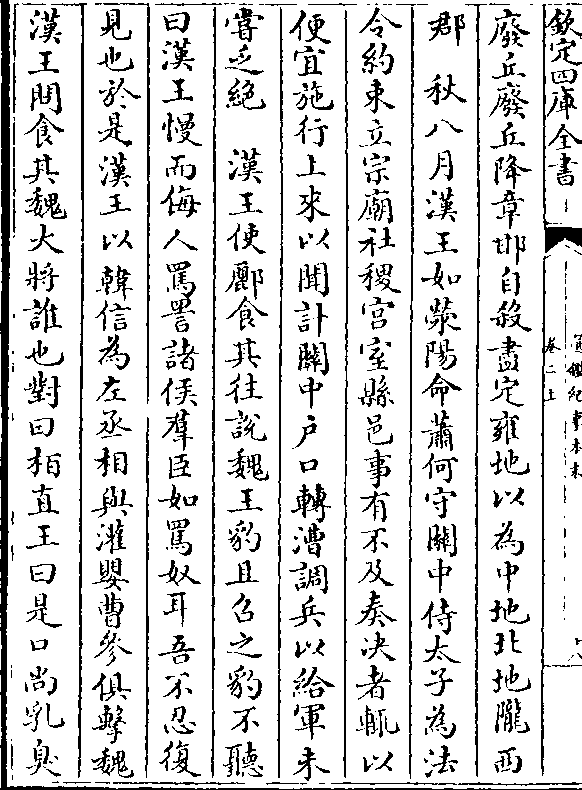 欽定四庫全書
通鑑紀事本末
卷二上
十八
廢丘廢丘降章邯自殺盡定雍地以為中地北地隴西
郡　秋八月漢王如滎陽命蕭何守關中侍太子為法
令約束立宗廟社稷宮室縣邑事有不及奏決者輒以
便宜施行上來以聞計關中戶口轉漕調兵以給軍未
嘗乏絕　漢王使酈食其往說魏王豹且召之豹不聽
曰漢王慢而侮人罵詈諸侯羣臣如罵奴耳吾不忍復
見也於是漢王以韓信為左丞相與灌嬰曹參俱擊魏
漢王問食其魏大將誰也對曰栢直王曰是口尚乳臭